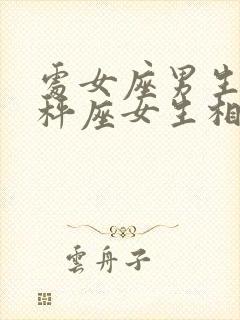 處女座男生
秤座女生相
雲舟子